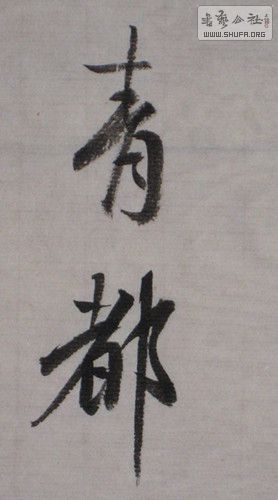 青都
书艺公社
WWW.SHUFA.ORG